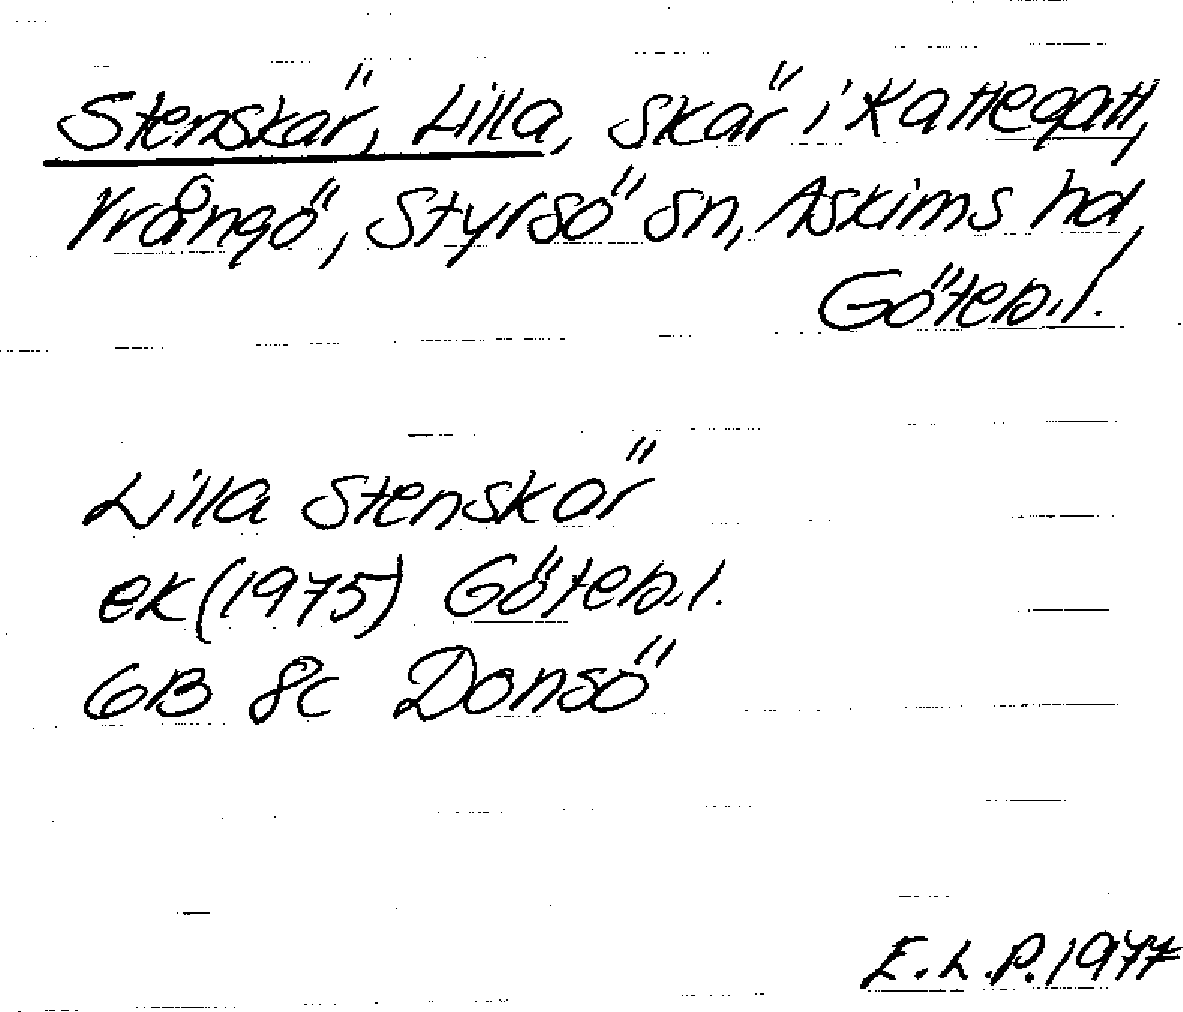 Stenskär, Lilla, skär i Kattegatt,
Vrångö, Styrsö sn, Askims hd,
Göteb.l.
Lilla Stenskär
ek (1975) Göteb.l.
6B 8c Donsö
E.L.P. 1977